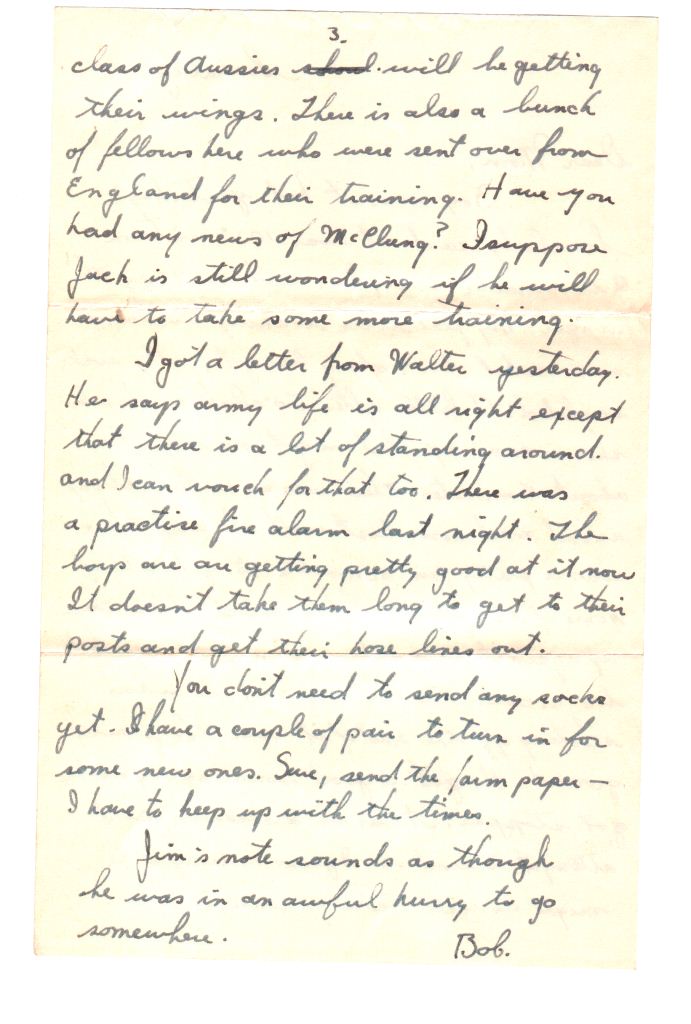 3.
class of Aussies will be getting
their wings. There is also a bunch
of fellows here who were sent over from
England for their training. Have you
had any news of McClung? I suppose
Jack is still wondering if he will
have to take some more training.
I got a letter from Walter yesterday.
He says army life is all right except
that there is a lot of standing around.
and I can vouch for that too. There was
a practise fire alarm last night. The
boys are are getting pretty good at it now
It doesn't take them long to get to their
posts and get their hose lines out.
You don't need to send any socks
yet. I have a couple of pair to turn in for
some new ones. Sure, send the farm paper —
I have to keep up with the times.
Jim's note sounds as though
he was in an awful hurry to go
somewhere.
Bob.